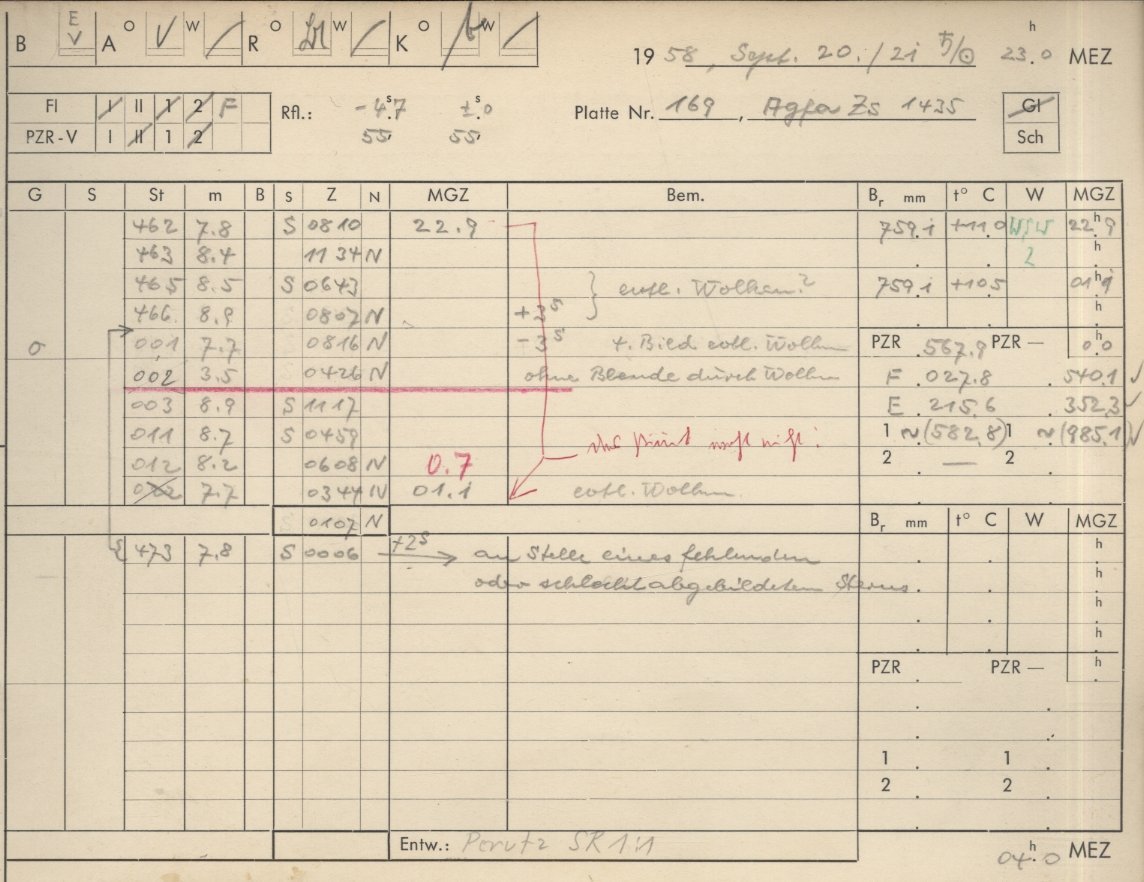 B E V A O V W / R O W / K O W /
h
19 58, Sept. 20./21 ♄/☉ 23.0 MEZ
Fl I II 1 2 F Rfl.: -4ˢ.7 ±ˢ.0 Platte Nr. 169, Agfa Zs 1435 Gl
PZR-V I II 1 2 55 55 Sch
G S St m B S Z N MGZ Bem. Bᵣ mm t° C W MGZ
462 7.8 S 0810 22.9 759.1 +11.0 WSW 22ʰ9
463 8.4 1134 N 2 h
465 8.5 S 0643 } evtl. Wolken? 759.1 +10.5 01ʰ1
466 8.9 0807 N +3ˢ h
σ 001 7.7 0816 N -3ˢ 4. Bild evtl. Wolken PZR 567.9 PZR — 0ʰ0
002 3.5 0426 N ohne Blende durch Wolken F 027.8 540.1 ✓
003 8.9 S 1117 E 215.6 352.3 ✓
011 8.7 S 0459 1 ~(582.8) 1 ~(985.1) ✓
012 8.2 0608 N 0.7 2 — 2
7.7 0344 N 01.1 evtl. Wolken
0107 N Bᵣ mm t° C W MGZ
{ 473 7.8 S 0006 +2ˢ → an Stelle eines fehlenden h
oder schlecht abgebildeten Sterns. h
h
h
PZR PZR — h
1 1
2 2
Entw.: Perutz SR 1:1
04ʰ.0 MEZ